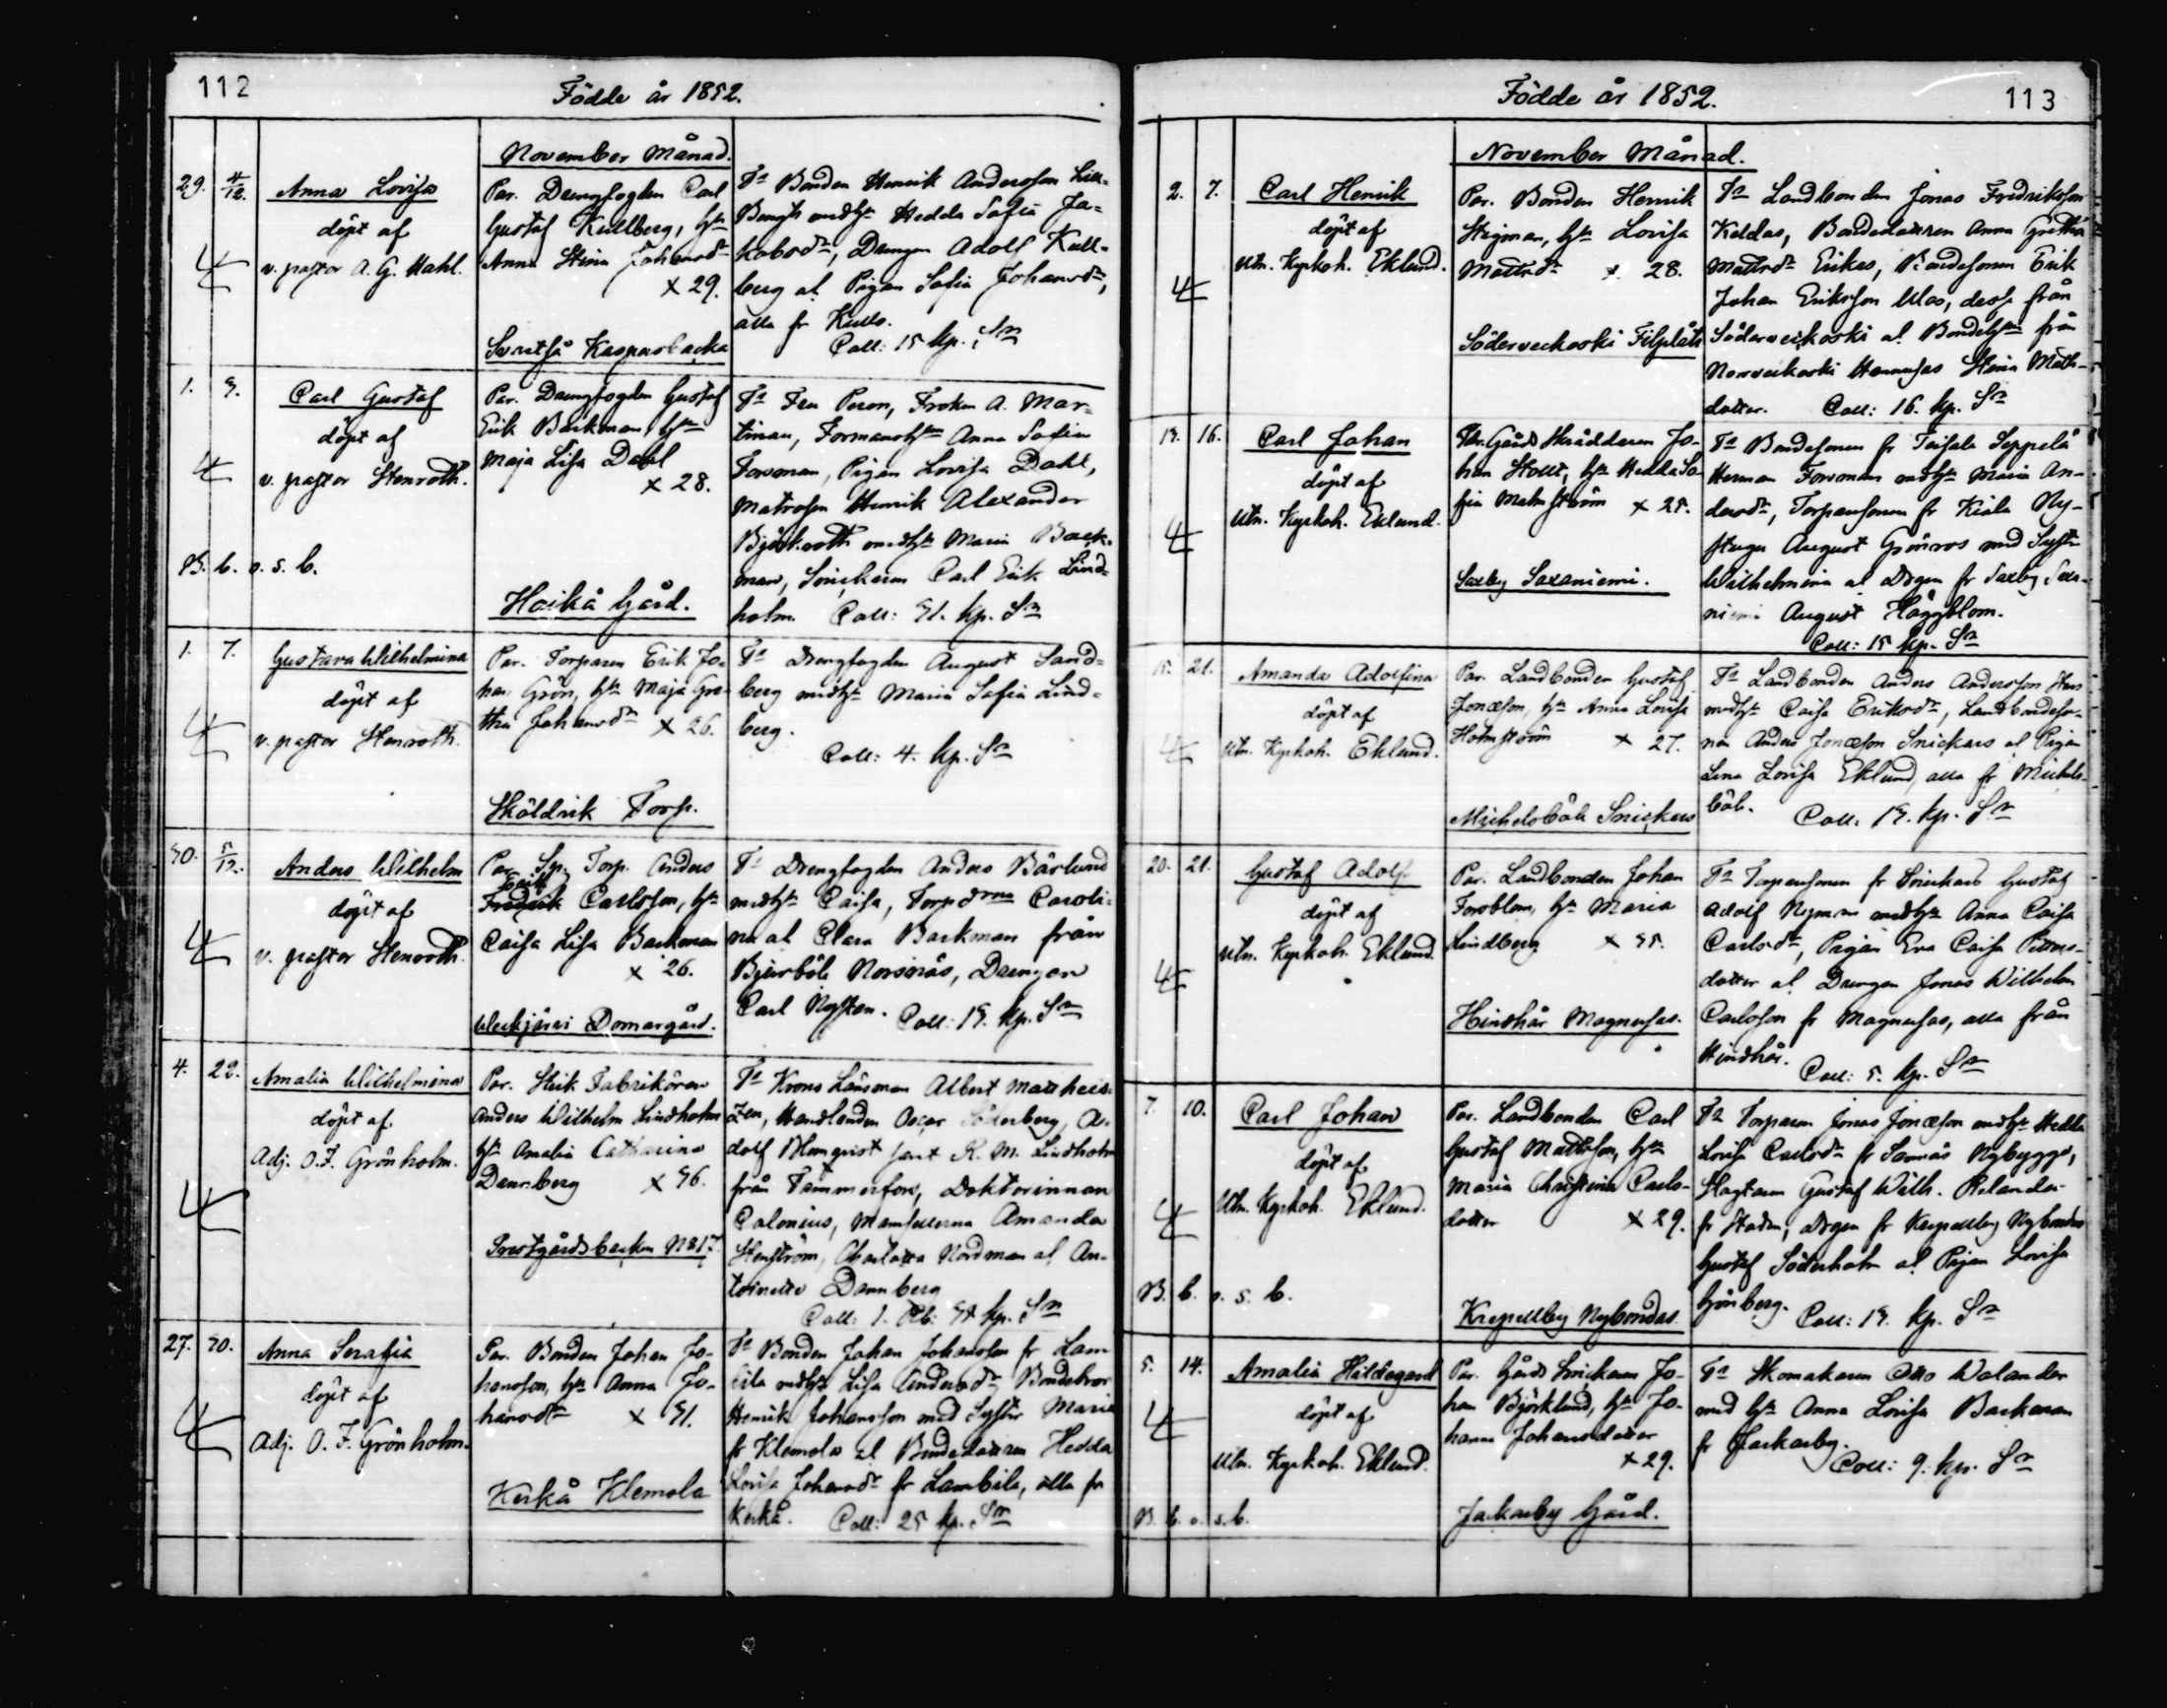 112
Födde år 1852.
November Månad.
29. 4/12. Anna Lovisa
döpt af
v. pastor A. G. Hahl.
Par. Drengfogden Carl
Gustaf Kullberg, hn
Anna Stina Johansdr
x 29.
Svartså Kaspersbacka
Fa Bonden Henrik Andersson Lill-
Bengts medhn Hedda Sofia Ja-
kobsdr, Drengen Adolf Kull-
berg al Pigan Sofia Johansdr,
alla fr Kullo.
Coll: 15 kp. Sr
1. 3. Carl Gustaf
döpt af
v. pastor Stenroth.
B. b. o. s. b.
Par. Drengfogden Gustaf
Erik Backman, hn
Maja Lisa Dahl
x 28.
Haikå Gård.
Fa Fru Peron, Fröken A. Mar-
tinau, Formanshn Anna Sofia
Forsman, Pigan Lovisa Dahl,
Matrosen Henrik Alexander
Björkroth medhn Maria Back-
man, Snickaren Carl Erik Lind-
holm. Coll: 31. kp. Sr
1. 7. Gustava Wilhelmina
döpt af
v. pastor Stenroth.
Par. Torparen Erik Jo-
han Grön, hn Maja Gre-
tha Johansdr x 26.
Sköldvik Torp.
Fa Drengfogden August Sand-
berg medhn Maria Sofia Lind-
berg.
Coll: 4. kp. Sr
30. 5/12. Anders Wilhelm
döpt af
v. pastor Stenroth.
Par. Sp. Torp. Anders
Erik
Fredrik Carlsson, hn
Caisa Lisa Backman
x 26.
Veckjärvi Domargård.
Fa Drengfogden Anders Bärlund
medhn Caisa, Torpdrna Caroli-
na al Clara Backman från
Bjurböle Norsnäs, Drengen
Carl Nysten. Coll: 13. kp. Sr
4. 22. Amalia Wilhelmina
döpt af
Adj. O. F. Grönholm.
Par. Stick Fabrikören
Anders Wilhelm Lindholm
hn Amalia Catharina
Dannberg x 36.
Prostgårdsbacken No 17.
Fa Krono Länsman Albert Matthei-
zen, Handlanden Oscar Söderberg, A-
dolf Blomqvist samt R. M. Lindholm
från Tammerfors, Doktorinnan
Calonius, Mamsellerna Amanda
Stenström, Charlotta Nordman al An-
toinette Dannberg
Coll: 1. Rb: 34 kp. Sr
27. 30. Anna Serafia
döpt af
Adj. O. F. Grönholm.
Par. Bonden Johan Jo-
hansson, hn Anna Jo-
hansdr x 31.
Kerkå Klemola
Fa Bonden Johan Johansson fr Lam
bila medhn Lisa Andersdr, Bondebror
Henrik Johansson med Syster Maria
fr Klemola al Bondedottren Hedda
Lovisa Johansdr fr Lambila, alla fr
Kerkå. Coll: 25 kp. Sr
Födde år 1852.
113
November Månad.
2. 7. Carl Henrik
döpt af
Utn. Kyrkoh. Eklund.
Par. Bonden Henrik
Stigman, hn Lovisa
Mattsdr x 28.
Söderveckoski Filpjåls
Fa Landbonden Jonas Fredriksson
Keldas, Bondedottren Anna Gretha
Mattsdr Erikas, Bondesonen Erik
Johan Eriksson Ulas, desse från
Söderveckoski al Bondehn från
Norrveckoski Hannusas Stina Matts-
dotter. Coll: 16. kp. Sr
13. 16. Carl Johan
döpt af
Utn. Kyrkoh. Eklund.
Par. Gårds Skräddaren Jo-
han Stolt, hn Hedda So-
fia Malmström x 25.
Saxby Saxaniemi.
Fa Bondesonen fr Teisala Seppelä
Herman Forsman medhn Maria An-
dersdr, Torparsonen fr Kiala Ny-
stuga August Grönros med Syster
Wilhelmina al Drgen fr Saxby Saxa-
niemi August Häggblom.
Coll: 15 kp. Sr
15. 21. Amanda Adolfina
döpt af
Utn. Kyrkoh. Eklund.
Par. Landbonden Gustaf
Jonasson, hn Anna Lovisa
Holmström x 27.
Michelsböle Snickars
Fa Landbonden Anders Andersson
medhn Caisa Eriksdr, Landbondeso-
nen Anders Jonasson Snickars al Pigan
Lena Lovisa Eklund, alla fr Michels-
böle. Coll. 13. kp. Sr
20. 21. Gustaf Adolf
döpt af
Utn. Kyrkoh. Eklund.
Par. Landbonden Johan
Forsblom, hn Maria
Lindberg x 35.
Hindhår Magnusas.
Fa Torparsonen fr Snickars Gustaf
Adolf Nyman medhn Anna Caisa
Carlsdr, Pigan Eva Caisa Petters-
dotter al Drengen Jonas Wilhelm
Carlsson fr Magnusas, alla från
Hindhår. Coll: 5. kp. Sr
7. 10. Carl Johan
döpt af
Utn. Kyrkoh. Eklund.
B. b. o. s. b.
Par. Landbonden Carl
Gustaf Mattsson, hn
Maria Christina Carls-
dotter x 29.
Krepelby Nybondas.
Fa Torparen Jonas Jonasson medhn Hedda
Lovisa Carlsdr fr Sannäs Nybygge,
Slagtaren Gustaf Wilh. Relander
fr Staden, Drgen fr Krepelby Nybondas
Gustaf Söderholm al Pigan Lovisa
Grönberg. Coll: 13. kp. Sr
5. 14. Amalia Hildegard
döpt af
Utn. Kyrkoh. Eklund.
B. b. o. s. b.
Par. Gårds Snickaren Jo-
han Björklund, hn Jo-
hanna Johansdotter
x 29.
Jackarby Gård.
Fa Skomakaren Otto Walander
med hn Anna Lovisa Backman
fr Jackarby.
Coll: 9. kp. Sr